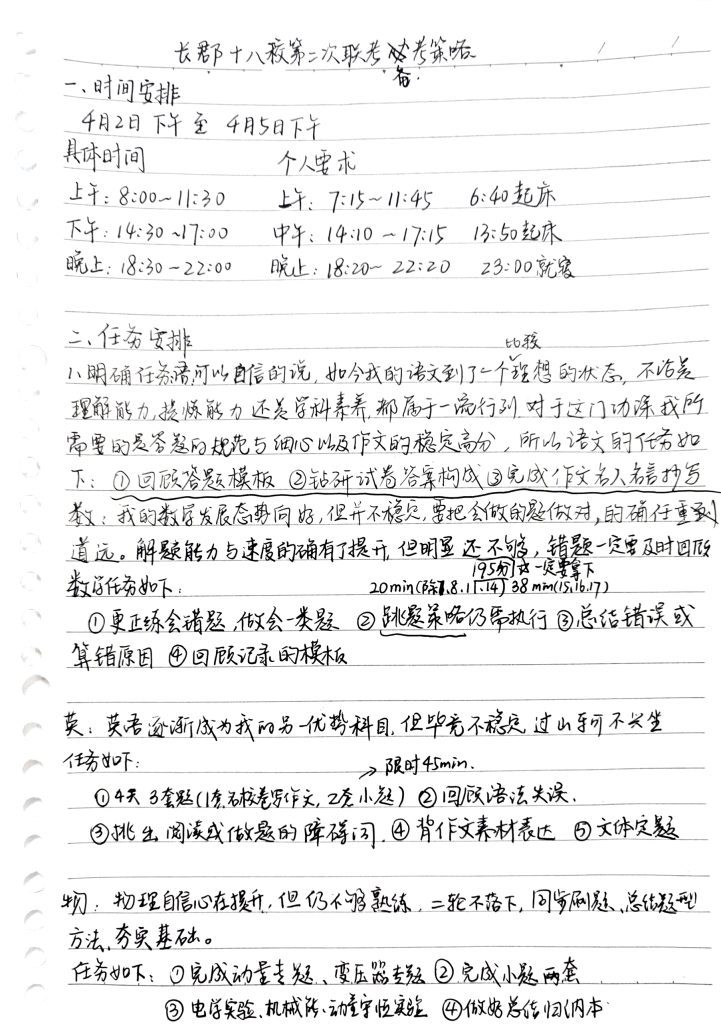 长郡十八校第二次联考备考策略
一、时间安排
4月2日下午 至 4月5日下午
具体时间 个人要求
上午：8:00~11:30 上午：7:15~11:45 6:40起床
下午：14:30~17:00 中午：14:10~17:15 13:50起床
晚上：18:30~22:00 晚上：18:20~22:20 23:00就寝
二、任务安排
1、明确任务：语：可以自信的说，如今我的语文到了一个比较理想的状态，不论是
理解能力、提炼能力还是学科素养，都属于一流行列，对于这门功课我所
需要的是答题的规范与细心以及作文的稳定高分，所以语文的任务如
下：①回顾答题模板 ②钻研试卷答案构成 ③完成作文名人名言抄写
数：我的数学发展态势向好，但并不稳定，要把会做的题做对，的确任重到
道远。解题能力与速度的确有了提升，但明显还不够，错题一定要及时回顾
195分 一定要拿下
数学任务如下： 20min(除7.8.11.14) 38min(15.16.17)
①更正练会错题，做会一类题 ②跳题策略仍需执行 ③总结错误或
算错原因 ④回顾记录的模板
英：英语逐渐成为我的另一优势科目，但毕竟不稳定，过山车可不兴坐
任务如下： →限时45min.
①4天3套题(1套名校卷写作文，2套小题) ②回顾语法失误.
③挑出阅读或做题的障碍词. ④背作文素材表达 ⑤文体定题
物：物理自信心在提升，但仍不够熟练，二轮不落下，同步刷题、总结题型
方法、夯实基础。
任务如下：①完成动量专题、变压器专题 ②完成小题两套
③电学实验、机械能、动量守恒实验 ④做好总结归纳本